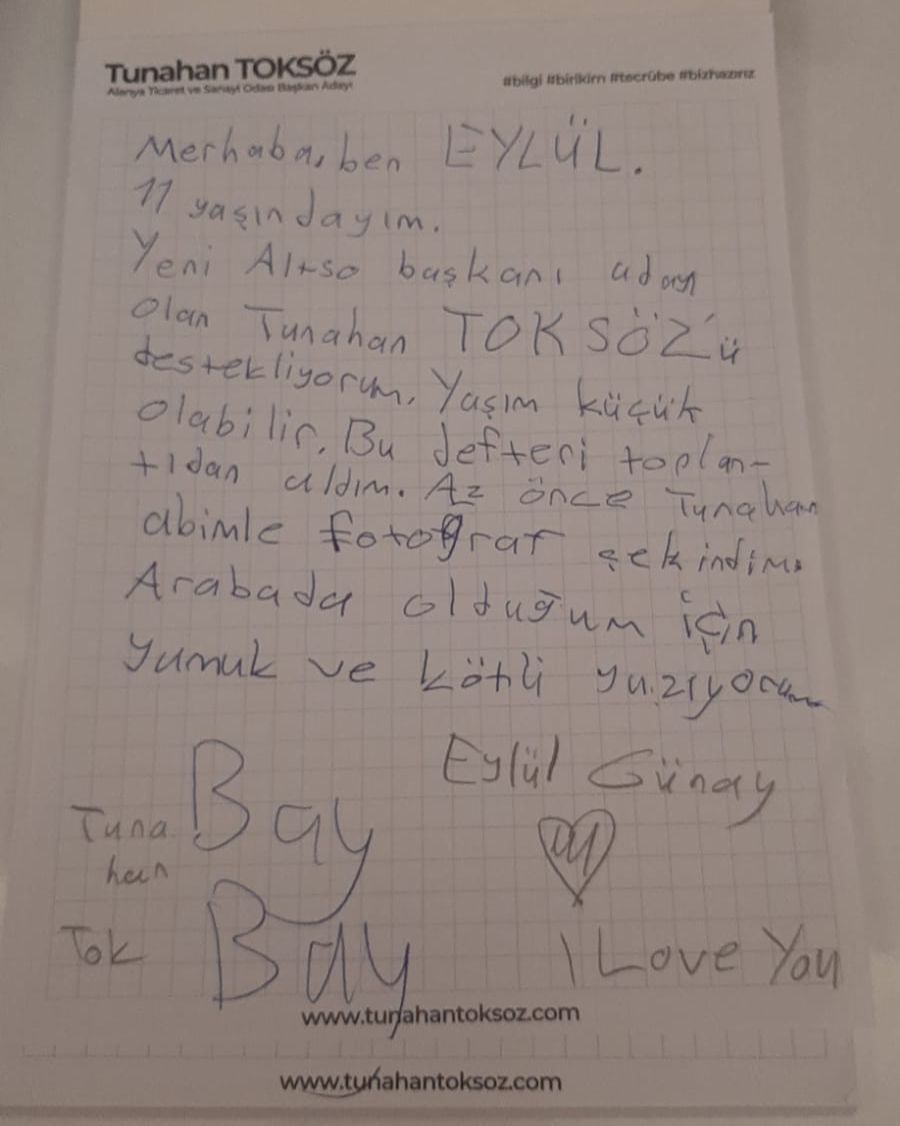 Tunahan TOKSÖZ
Alanya Ticaret ve Sanayi Odası Başkan Adayı
#bilgi #birikim #tecrübe #bizhazırız
Merhaba, ben EYLÜL.
11 yaşındayım.
Yeni Altso başkanı adayı
olan Tunahan TOKSÖZ'ü
destekliyorum. Yaşım küçük
olabilir. Bu defteri toplan-
tıdan aldım. Az önce Tunahan
abimle fotoğraf çekindim.
Arabada olduğum için
yumuk ve kötü yazıyorum
Eylül Günay
Tuna Bay
han
Tok Bay
I Love You
www.tunahantoksoz.com
www.tunahantoksoz.com